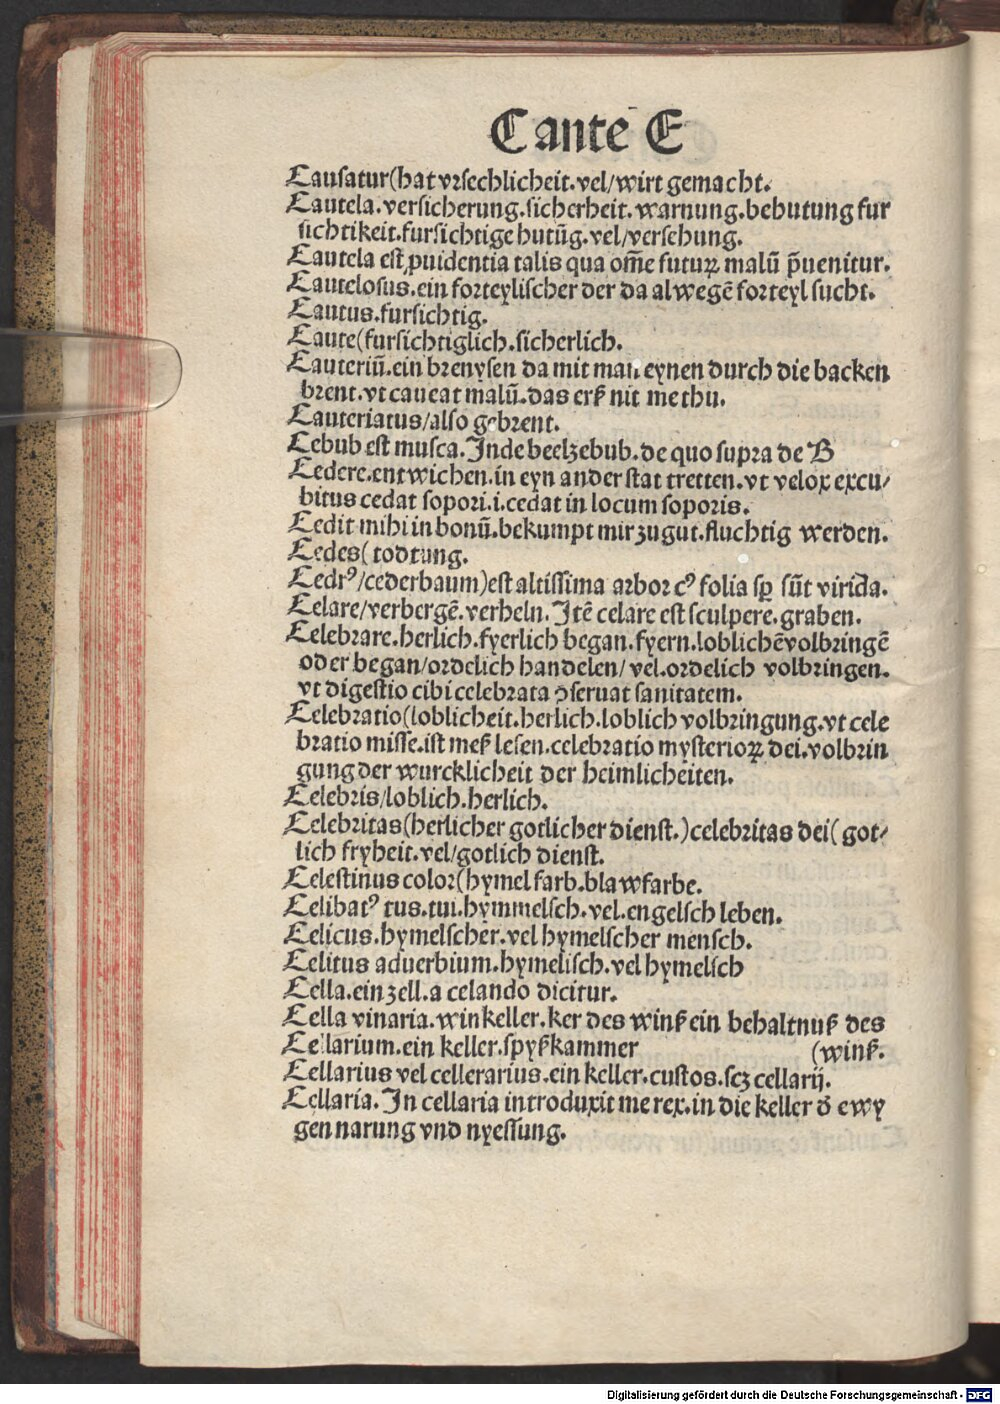 C ante E
Causatur(hat vrsechlicheit.vel/wirt gemacht.
Cautela.versicherung.sicherheit.warnung.behutung fur
sichtikeit.fursichtige hutūg.vel/versehung.
Cautela est ꝓuidentia talis qua om̄e futuꝝ malū p̄uenitur.
Cautelosus.ein forteylischer der da alwegē forteyl sucht.
Cautus.fursichtig.
Caute(fursichtiglich.sicherlich.
Cauteriū.ein brenysen da mit man eynen durch die backen
brent.vt caueat malū.das erß nit me thu.
Cauteriatus/also gebrent.
Cebub est musca.Inde beelzebub.de quo supra de B
Cedere.entwichen.in eyn ander stat tretten.vt velox excu/
bitus cedat sopori.i.cedat in locum soporis.
Cedit mihi in bonū.bekumpt mir zu gut.fluchtig werden.
Cedes( todtung.
Cedrꝰ/cederbaum)est altissima arbor cꝰ folia sꝑ sūt virida.
Celare/verbergē.verheln.Itē celare est sculpere.graben.
Celebrare.herlich.fyerlich began.fyern.loblichē volbringē
oder began/ordelich handelen/ vel.ordelich volbringen.
vt digestio cibi celebrata ꝯseruat sanitatem.
Celebratio(loblicheit.herlich.loblich volbringung.vt cele
bratio misse.ist meß lesen.celebratio mysterioꝝ dei.volbrin
gung der wurcklicheit der heimlicheiten.
Celebris/loblich.herlich.
Celebritas(herlicher gotlicher dienst.)celebritas dei( got/
lich fryheit.vel/gotlich dienst.
Celestinus color(hymel farb.blawfarbe.
Celibatꝰ tus.tui.hymmelsch.vel.engelsch leben.
Celicus.hymelscher.vel hymelscher mensch.
Celitus aduerbium.hymelisch.vel hymelsch
Cella.ein zell.a celando dicitur.
Cella vinaria.winkeller.ker des winß ein behaltnuß des
Cellarium.ein keller.spyßkammer (winß.
Cellarius vel cellerarius.ein keller.custos.scꝫ cellarij.
Cellaria.In cellaria introduxit me rex.in die keller d̄ ewy
gen narung vnd nyessung.
Digitalisierung gefördert durch die Deutsche Forschungsgemeinschaft - DFG